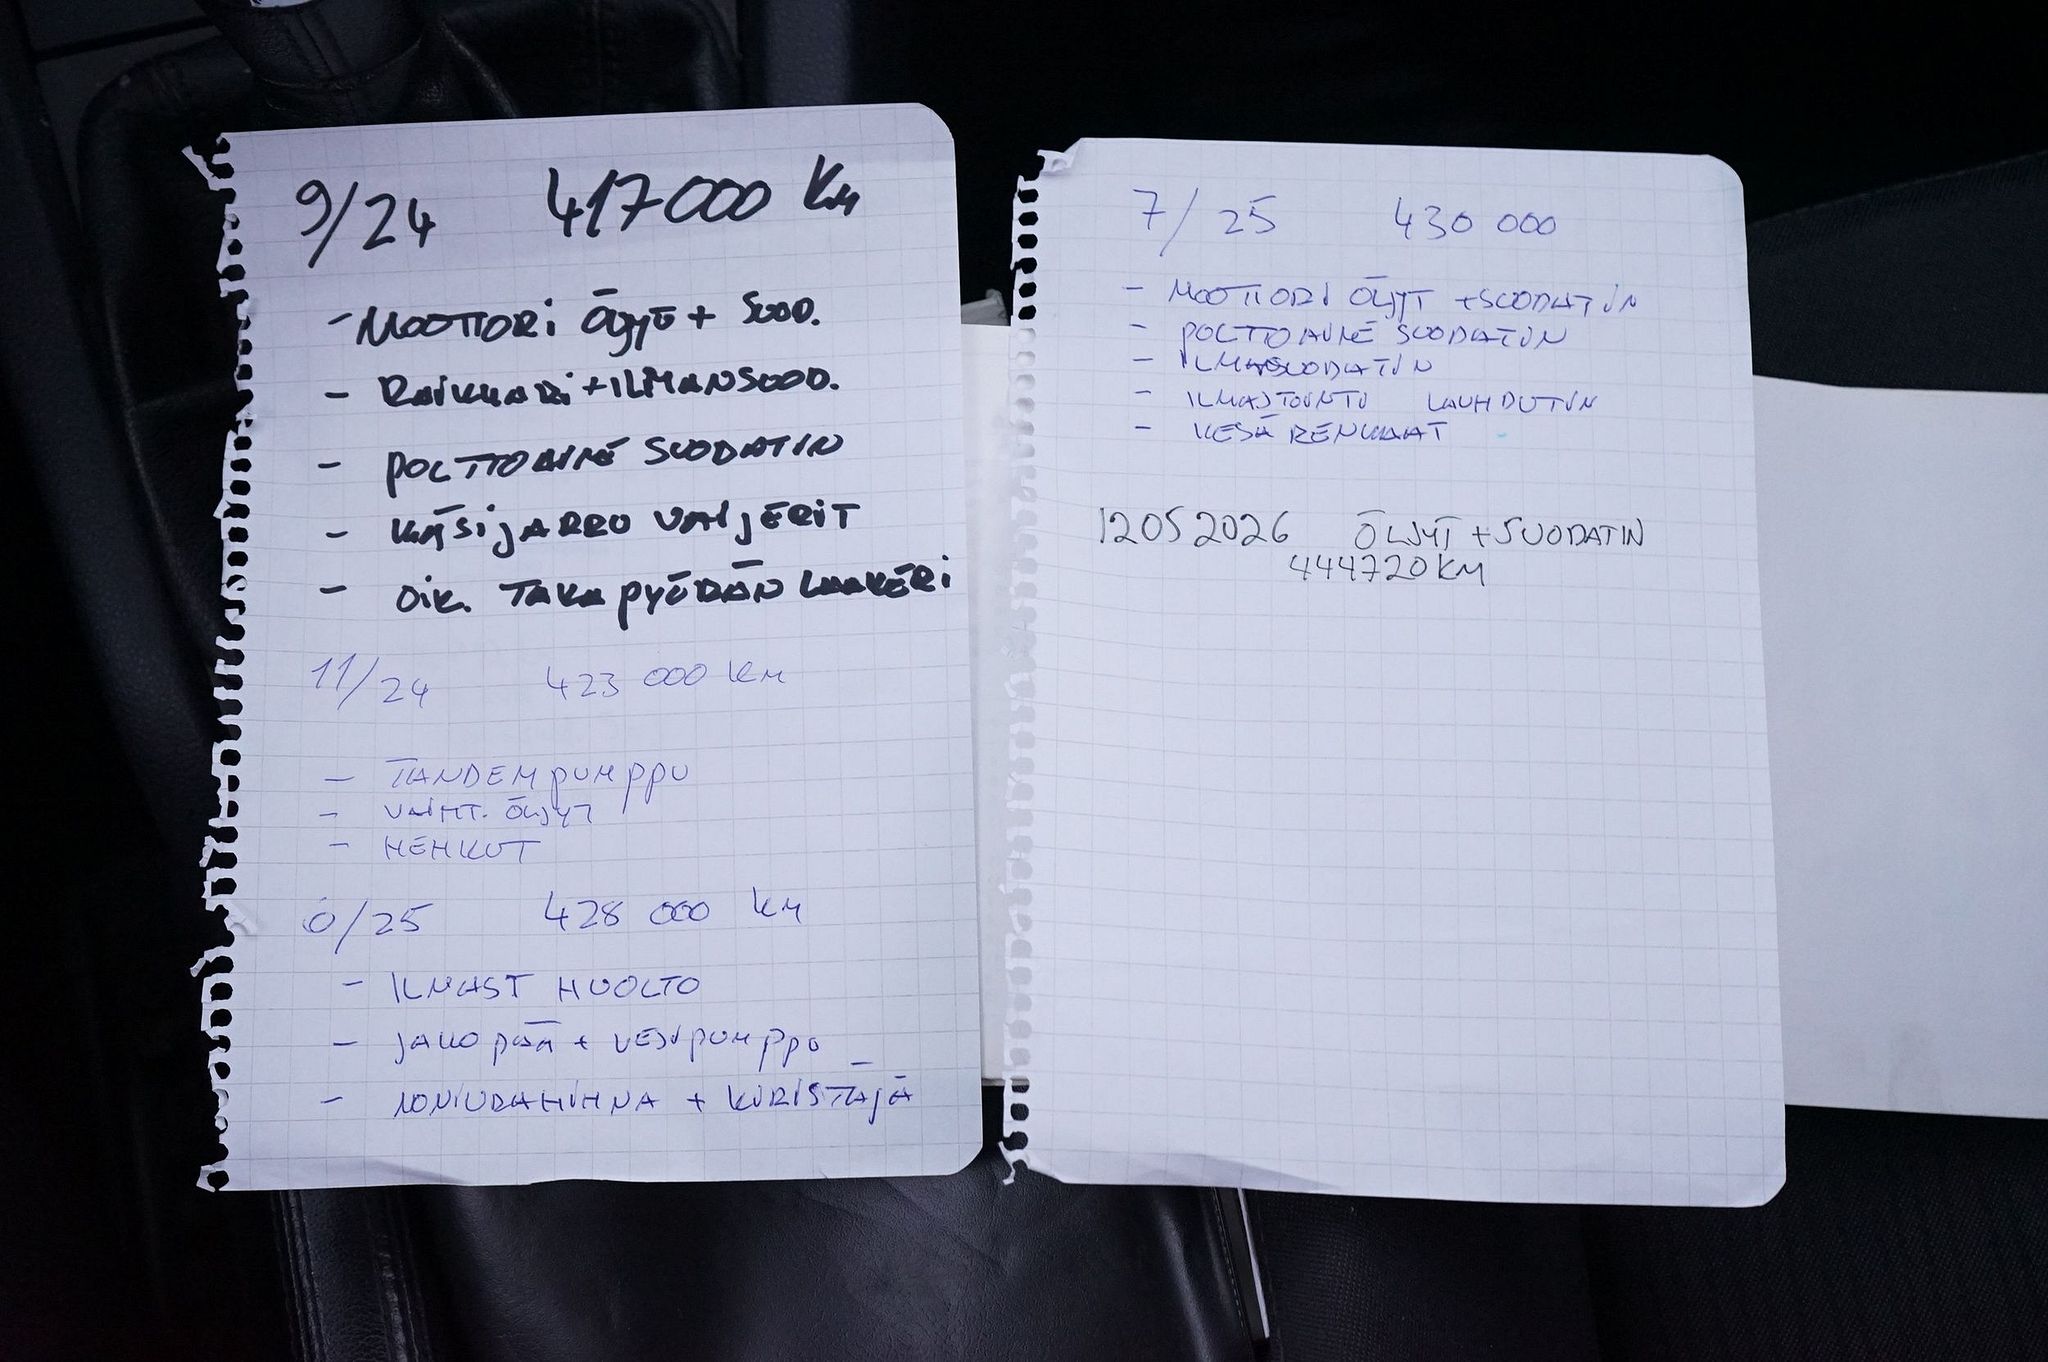 9/24 417000 Km
- MOOTTORI ÖLJYT + SUOD.
- RAIKKARI + ILMANSUOD.
- POLTTOAINE SUODATIN
- KÄSIJARRU VAIJERIT
- OIK. TAKA PYÖRÄN LAAKERI
11/24 423 000 KM
- TANDEMPUMPPU
- VAIHT. ÖLJYT
- HEHKUT
/25 428 000 KM
- ILMAST HUOLTO
- JAKOPÄÄ + VESIPUMPPU
- MONIURAHIHNA + KIRISTÄJÄ
7/25 430 000
- MOOTTORI ÖLJYT + SUODATIN
- POLTTOAINE SUODATIN
- ILMASUODATIN
- ILMASTOINTI LAUHDUTIN
- KESÄ RENKAAT
12052026 ÖLJYT + SUODATIN
444720KM